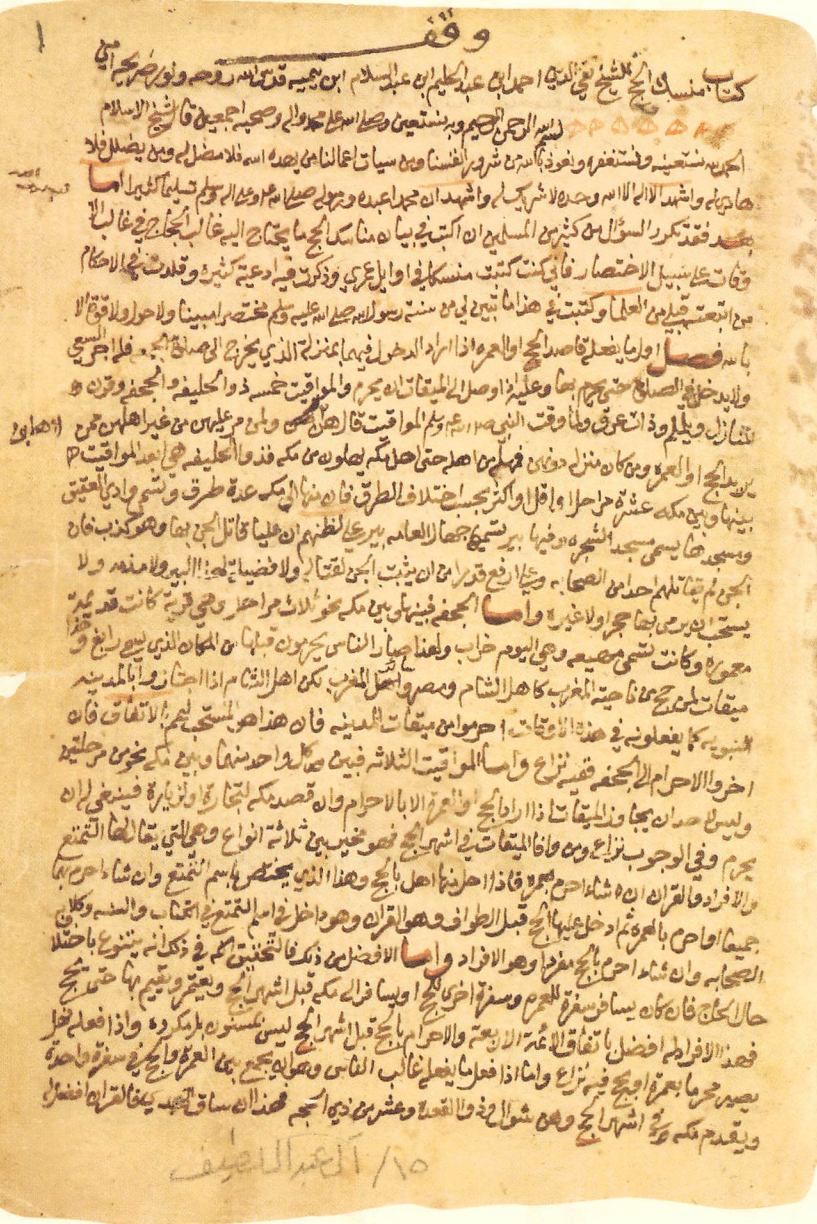 وقف
١
كتاب منسك الحج للشيخ تقي الدين احمد ابن عبد الحليم ابن عبد السلام ابن تيميه قدس الله روحه ونور ضريحه امين
بسم الله الرحمن الرحيم وبه نستعين وصلى الله على محمد واله وصحبه اجمعين قال شيخ الاسلام
الحمد لله نستعينه ونستغفره ونعوذ بالله من شرور انفسنا ومن سيات اعمالنا من يهده الله فلا مضل له ومن يضلل فلا
هادي له واشهد ان لا اله الا الله وحده لا شريك له واشهد ان محمدا عبده ورسوله صلى الله عليه وعلى اله وسلم تسليما كثيرا اما
بعد فقد تكرر السؤال من كثير من المسلمين ان اكتب في بيان مناسك الحج ما يحتاج اليه غالب الحجاج في غالب الا
وقات على سبيل الاختصار فاني كنت كتبت منسكا في اوايل عمري وذكرت فيه ادعية كثيرة وقلدت في الاحكام
من اتبعته قبلي من العلما وكتبت في هذا ما تبين لي من سنة رسول الله صلى الله عليه وسلم مختصرا مبينا ولا حول ولا قوة الا
بالله فصل اول ما يفعله قاصد الحج او العمره اذا اراد الدخول فيهما بمنزلة الذي يخرج الى صلاة الجمعه فله اجر السعي
ولا يدخل في الصلاة حتى يحرم بها وعليه اذا وصل الى الميقات ان يحرم والمواقيت خمسه ذو الحليفه والجحفه وقرن
المنازل ويلملم وذات عرق ولما وقت النبي صلى الله عليه وسلم المواقيت قال هن لهن ولمن مر عليهن من غير اهلهن ممن
يريد الحج او العمره ومن كان منزله دونهن فمهله من اهله حتى اهل مكه يهلون من مكه فذو الحليفه هي ابعد المواقيت
بينها وبين مكه عشرة مراحل او اقل او اكثر بحسب اختلاف الطرق فان منها الى مكه عدة طرق وتسمى وادي العقيق
ومسجدها يسمى مسجد الشجره وفيها بير تسميها جهال العامه بير علي لظنهم ان عليا قاتل الجن بها وهو كذب فان
الجن لم يقاتلهم احد من الصحابه وعلي ارفع قدرا من ان يثبت الجن لقتاله ولا فضيلة لهذا البير ولا مذمه ولا
يستحب ان يرمى بها حجرا ولا غيره واما الجحفه فبينها وبين مكه نحو ثلاث مراحل وهي قرية كانت قديمة
معمورة وكانت تسمى مهيعه وهي اليوم خراب ولهذا صار الناس يحرمون قبلها من المكان الذي يسمى رابغ وهذا
ميقات لمن حج من ناحية المغرب كاهل الشام ومصر واهل المغرب لكن اهل الشام اذا اجتازوا بالمدينه
النبويه كما يفعلونه في هذه الاوقات احرموا من ميقات المدينه فان هذا هو المستحب لهم بالاتفاق فان
اخروا الاحرام الى الجحفه ففيه نزاع واما المواقيت الثلاثه فبين كل واحد منها وبين مكه نحو من مرحلتين
وليس لاحد ان يجاوز الميقات اذا اراد الحج او العمرة الا بالاحرام وان قصد مكه لتجارة او لزيارة فينبغي له ان
يحرم وفي الوجوب نزاع ومن وافا الميقات في اشهر الحج فهو مخير بين ثلاثة انواع وهي التي يقال لها التمتع
والافراد والقران ان شاء احرم بعمرة فاذا احل منها اهل بالحج وهذا الذي يختص باسم التمتع وان شاء احرم بهما
جميعا او احرم بالعمرة ثم ادخل عليها الحج قبل الطواف وهو القران وهو داخل في اسم التمتع في الكتاب والسنه وكلام
الصحابه وان شاء احرم بالحج مفردا وهو الافراد واما الافضل من ذلك فالتحقيق انه في ذلك انه يتنوع باختلا
حال الحاج فان كان يسافر سفرة للعمره وسفرة اخرى للحج او يسافر الى مكه قبل اشهر الحج ويعتمر ويقيم بها حتى يحج
فهذا الافراد له افضل باتفاق الائمة الاربعه والاحرام بالحج قبل اشهر الحج ليس بمسنون بل مكروه واذا فعله فهل
يصير محرما بعمرة او بحج فيه نزاع واما اذا فعل ما يفعله غالب الناس وهو ان يجمع بين العمرة والحج في سفرة واحدة
ويقدم مكه في اشهر الحج وهن شوال وذو القعدة وعشر من ذي الحجه فهذا ان ساق الهدي فالقران افضل له
١٥/ آل عبد اللطيف